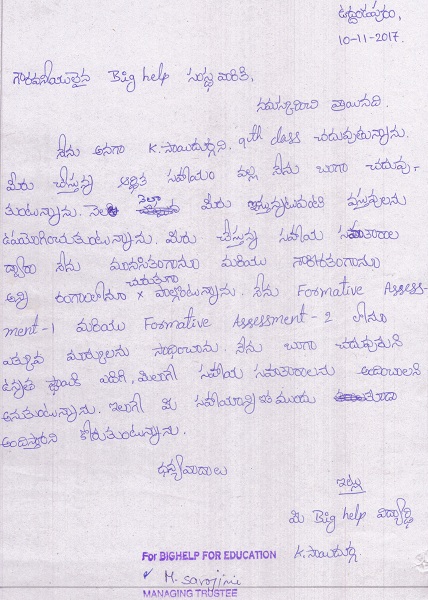 ఉద్దండపురం,
10-11-2017.
గౌరవనీయులైన Big help సంస్థ వారికి,
నమస్కరించి వ్రాయునది.
నేను అనగా K. సాయిదుర్గిని. 9th class చదువుతున్నాను.
మీరు చేస్తున్న ఆర్థిక సహాయం వల్ల నేను బాగా చదువు-
తుంటున్నాను. నెల నెలా మీరు ఇస్తున్నటువంటి వస్తువులను
ఉపయోగించుకుంటున్నాను. మీరు చేస్తున్న సహాయ సహకారాల
ద్వారా నేను మానసికంగాను మరియు శారీరకంగాను
అన్ని రంగాలలోనూ చురుకుగా పాల్గొంటున్నాను. నేను Formative Assess-
ment-1 మరియు Formative Assessment-2 లోను
ఎక్కువ మార్కులను సాధించాను. నేను బాగా చదువుకుని
ఉన్నత స్థాయికి ఎదిగి, మీలాగే సహాయ సహకారాలను అందించాలని
అనుకుంటున్నాను. ఇలాగే మీ సహాయాన్ని ఇక ముందు కూడా
అందిస్తారని కోరుకుంటున్నాను.
ధన్యవాదాలు
ఇట్లు
మీ Big help విద్యార్థి
K. సాయిదుర్గ
For BIGHELP FOR EDUCATION
M. Sarojini
MANAGING TRUSTEE